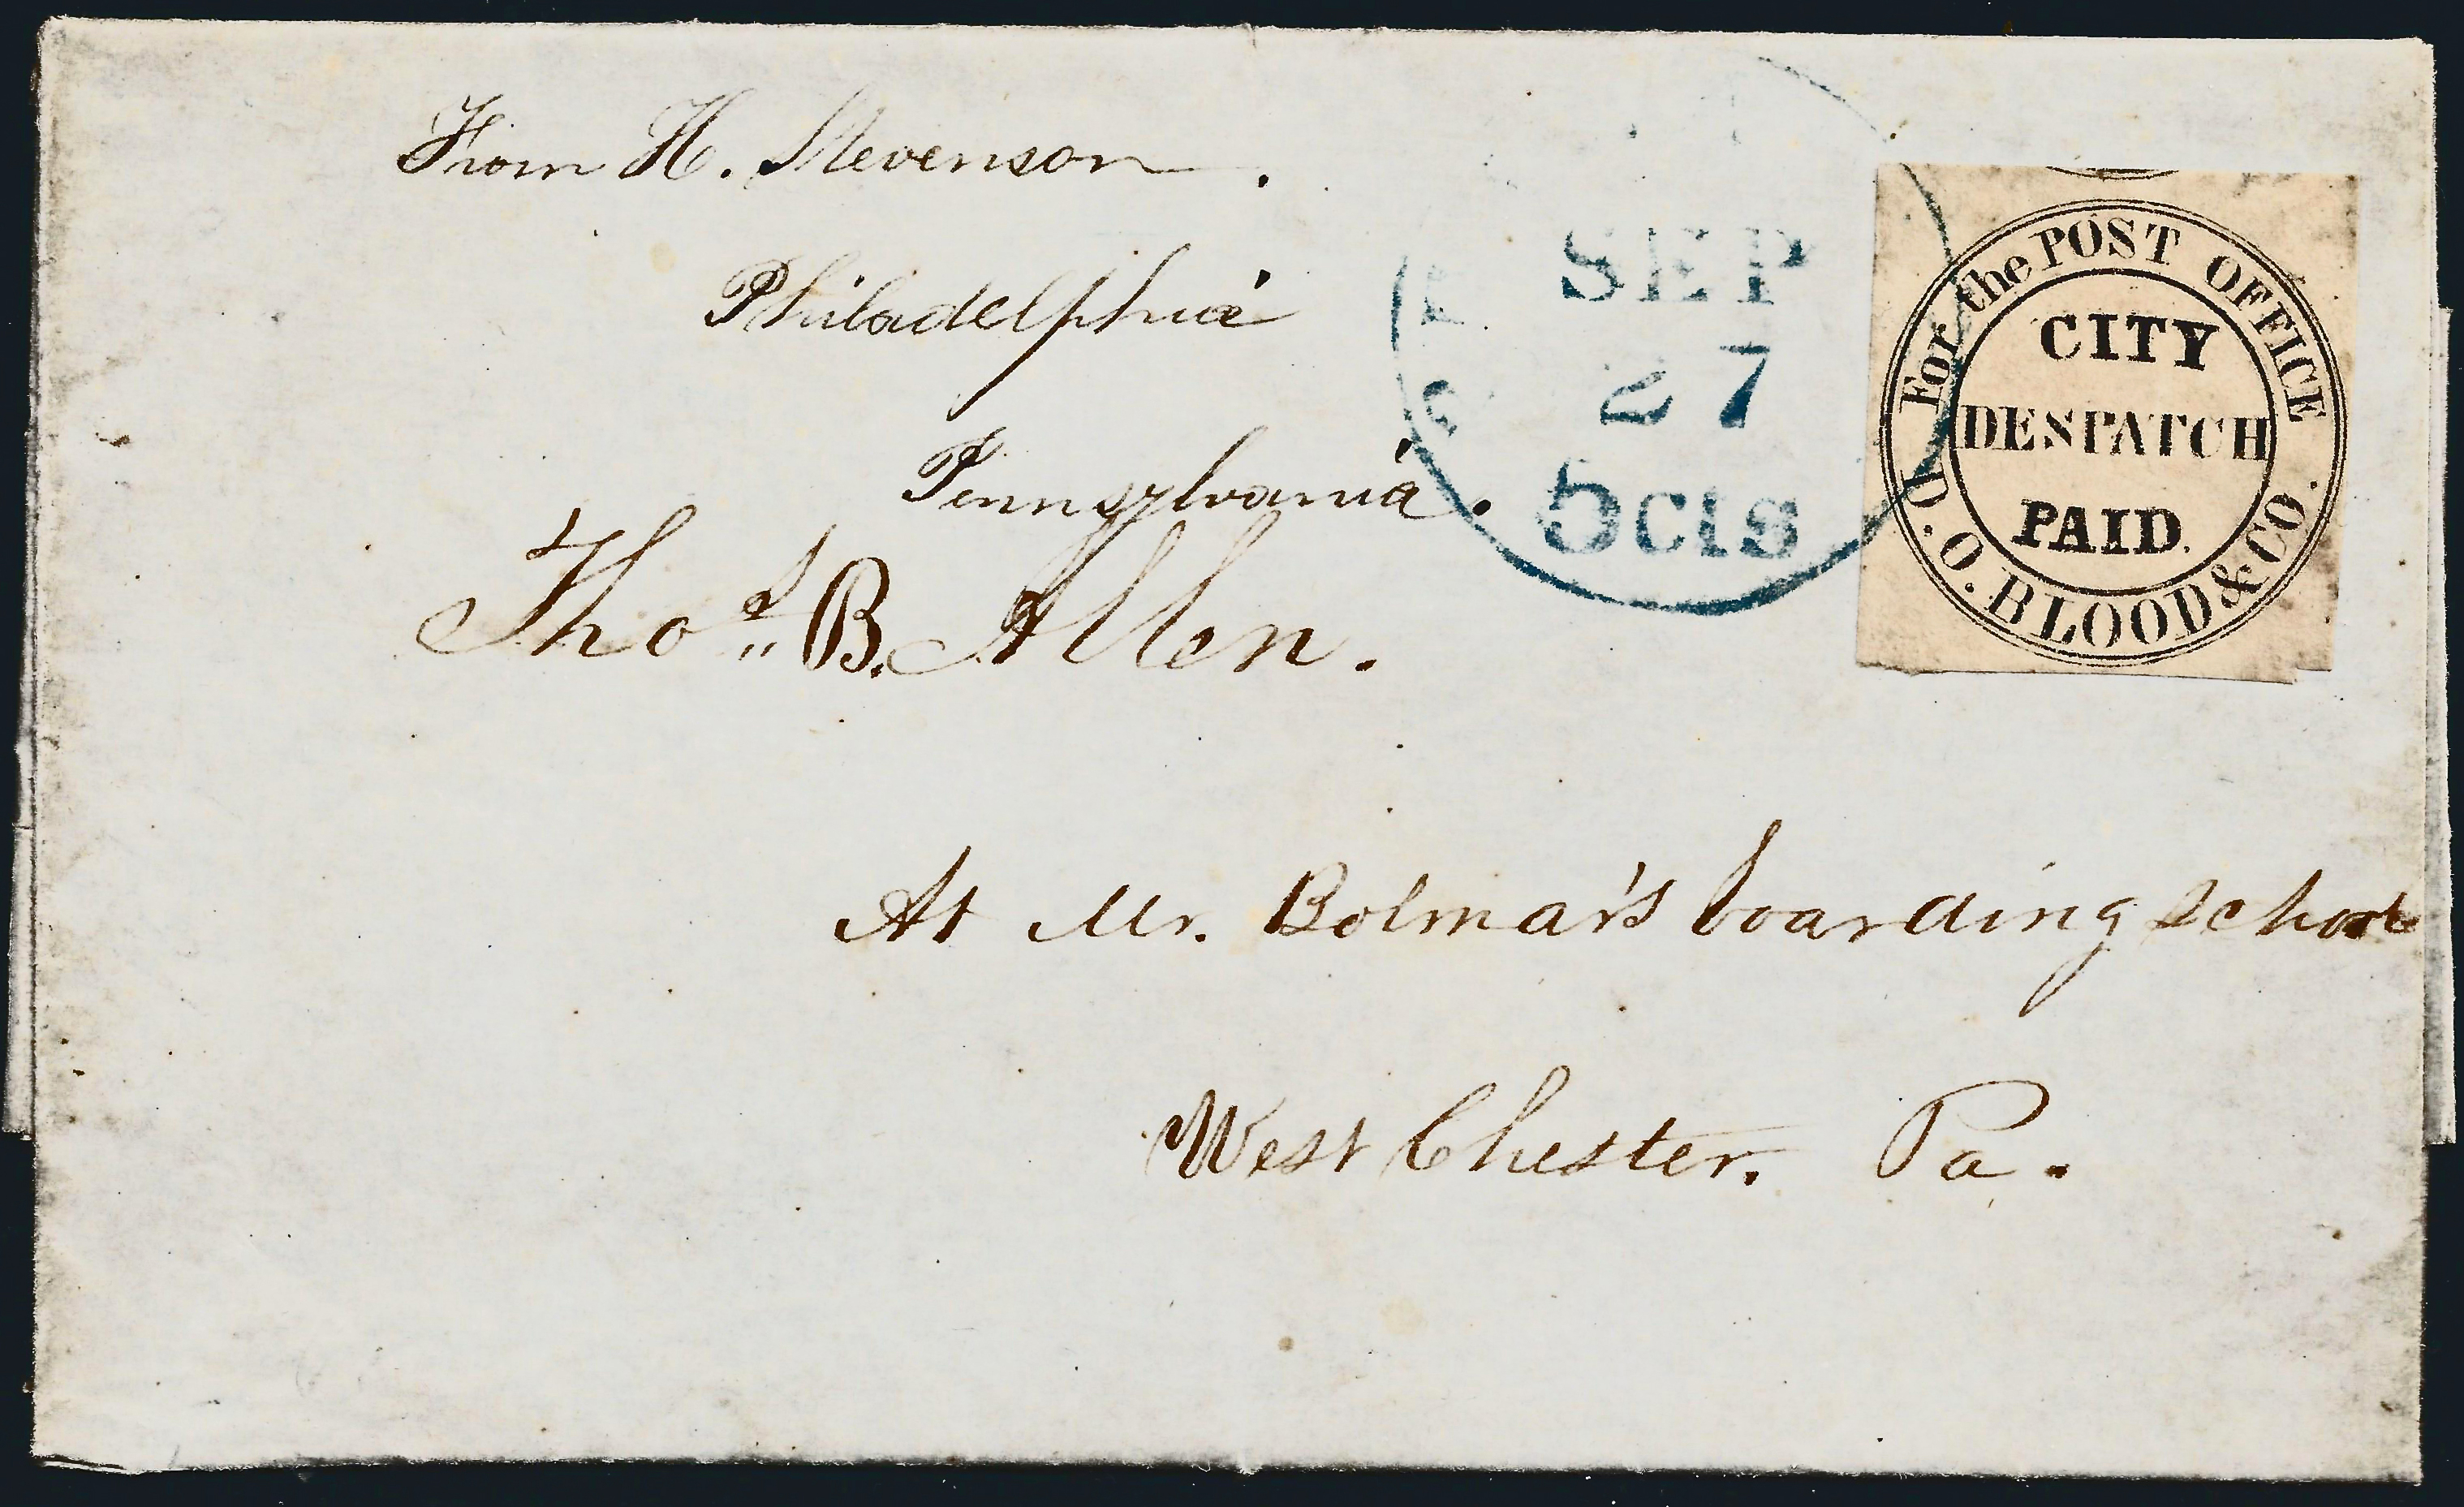 From H. Stevenson.
Philadelphia
Pennsylvania.
Thos. B. Allen.
At Mr. Bolmar's boarding school
West Chester. Pa.
SEP
27
5cts
For the POST OFFICE
CITY
DESPATCH
PAID.
D.O. BLOOD & CO.